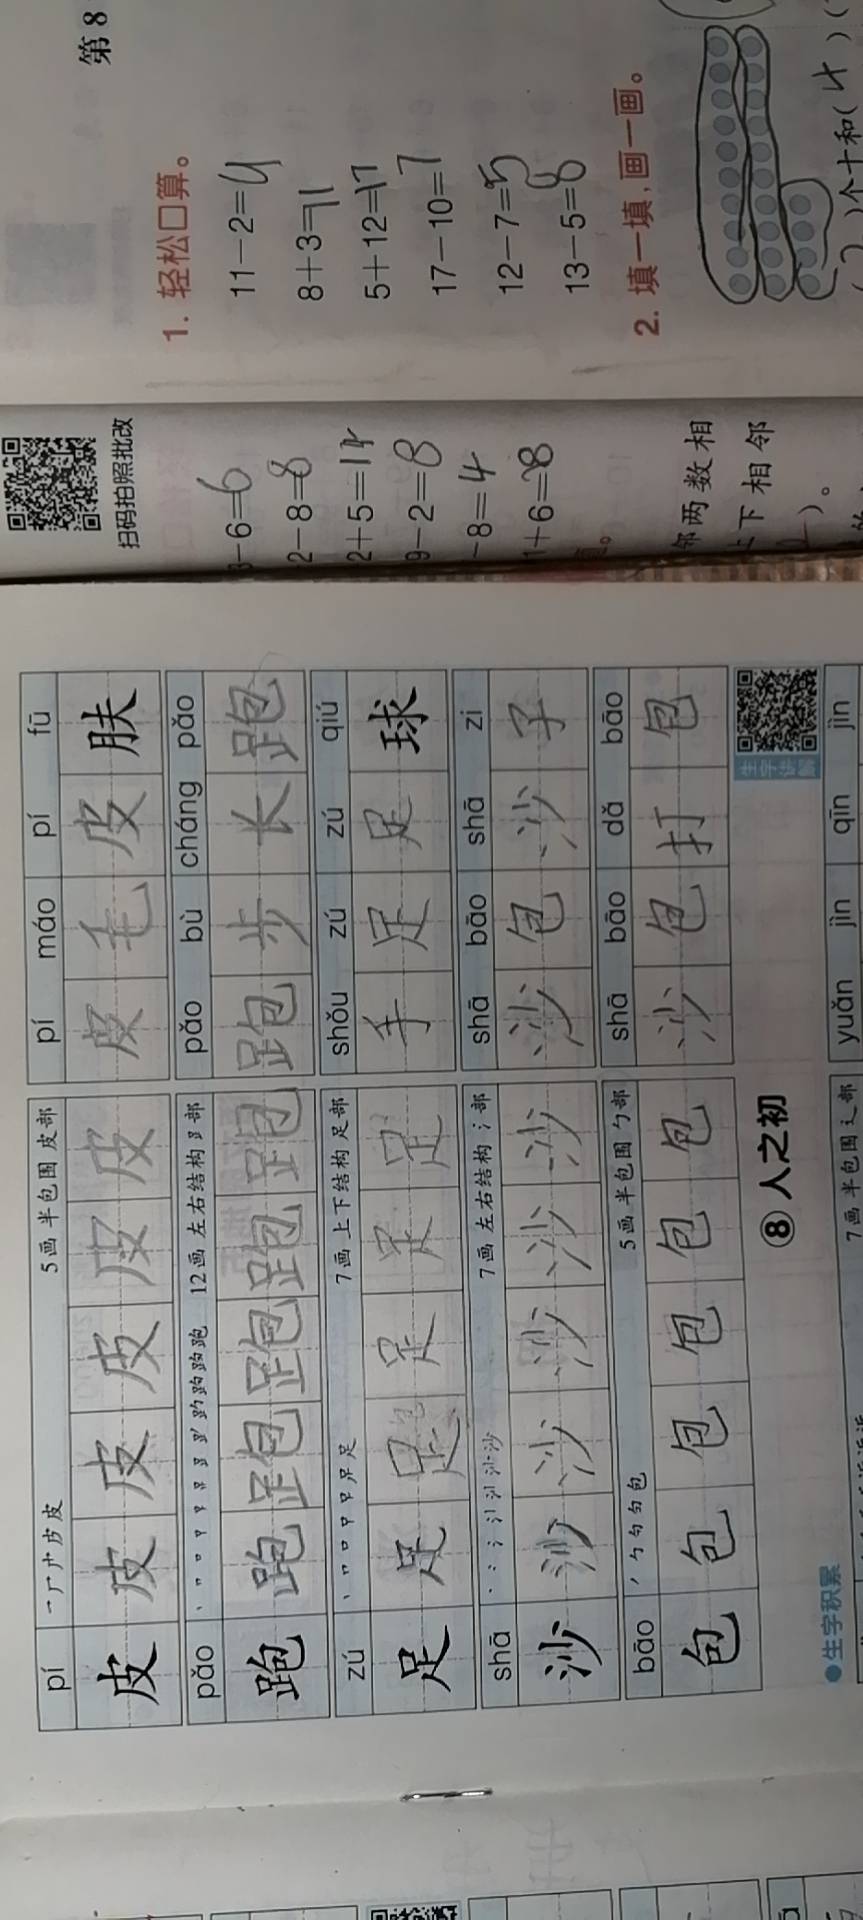 pí 一厂广皮皮 5画 半包围 皮部 pí máo pí fū
皮 皮 皮 皮 皮 皮 皮 毛 皮 肤
pǎo 12画 左右结构 𧾷部 pǎo bù cháng pǎo
跑 跑 跑 跑 跑 跑 跑 步 长 跑
zú 丶 口 口 足 7画 上下结构 足部 shǒu zú zú qiú
足 足 足 足 足 足 手 足 足 球
shā 丶 丶 氵 沙 沙 7画 左右结构 氵部 shā bāo shā zi
沙 沙 沙 沙 沙 沙 沙 包 沙 子
bāo 丿 勹 勺 匀 包 5画 半包围 勹部 shā bāo dǎ bāo
包 包 包 包 包 包 沙 包 打 包
⑧ 人之初
生字讲解
●生字积累
7画 半包围 辶部 yuǎn jìn qīn jìn
扫码拍照批改
-6=6
2-8=8
2+5=14
9-2=8
-8=4
1+6=8
邻两数相
上下相邻
)。
第8
1. 轻松口算。
11-2=9
8+3=11
5+12=17
17-10=7
12-7=5
13-5=8
2. 填一填,画一画。
(2)个十和(4)(